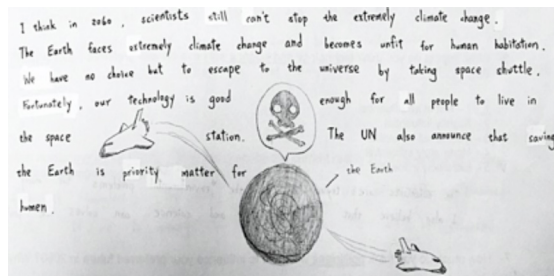 I think in 2060, scientists still can't stop the extremely climate change.
The Earth faces extremely climate change and becomes unfit for human habitation.
We have no choice but to escape to the universe by taking space shuttle.
Fortunately, our technology is good enough for all people to live in
the space station. The UN also announce that saving
the Earth is priority matter for
the Earth
human.